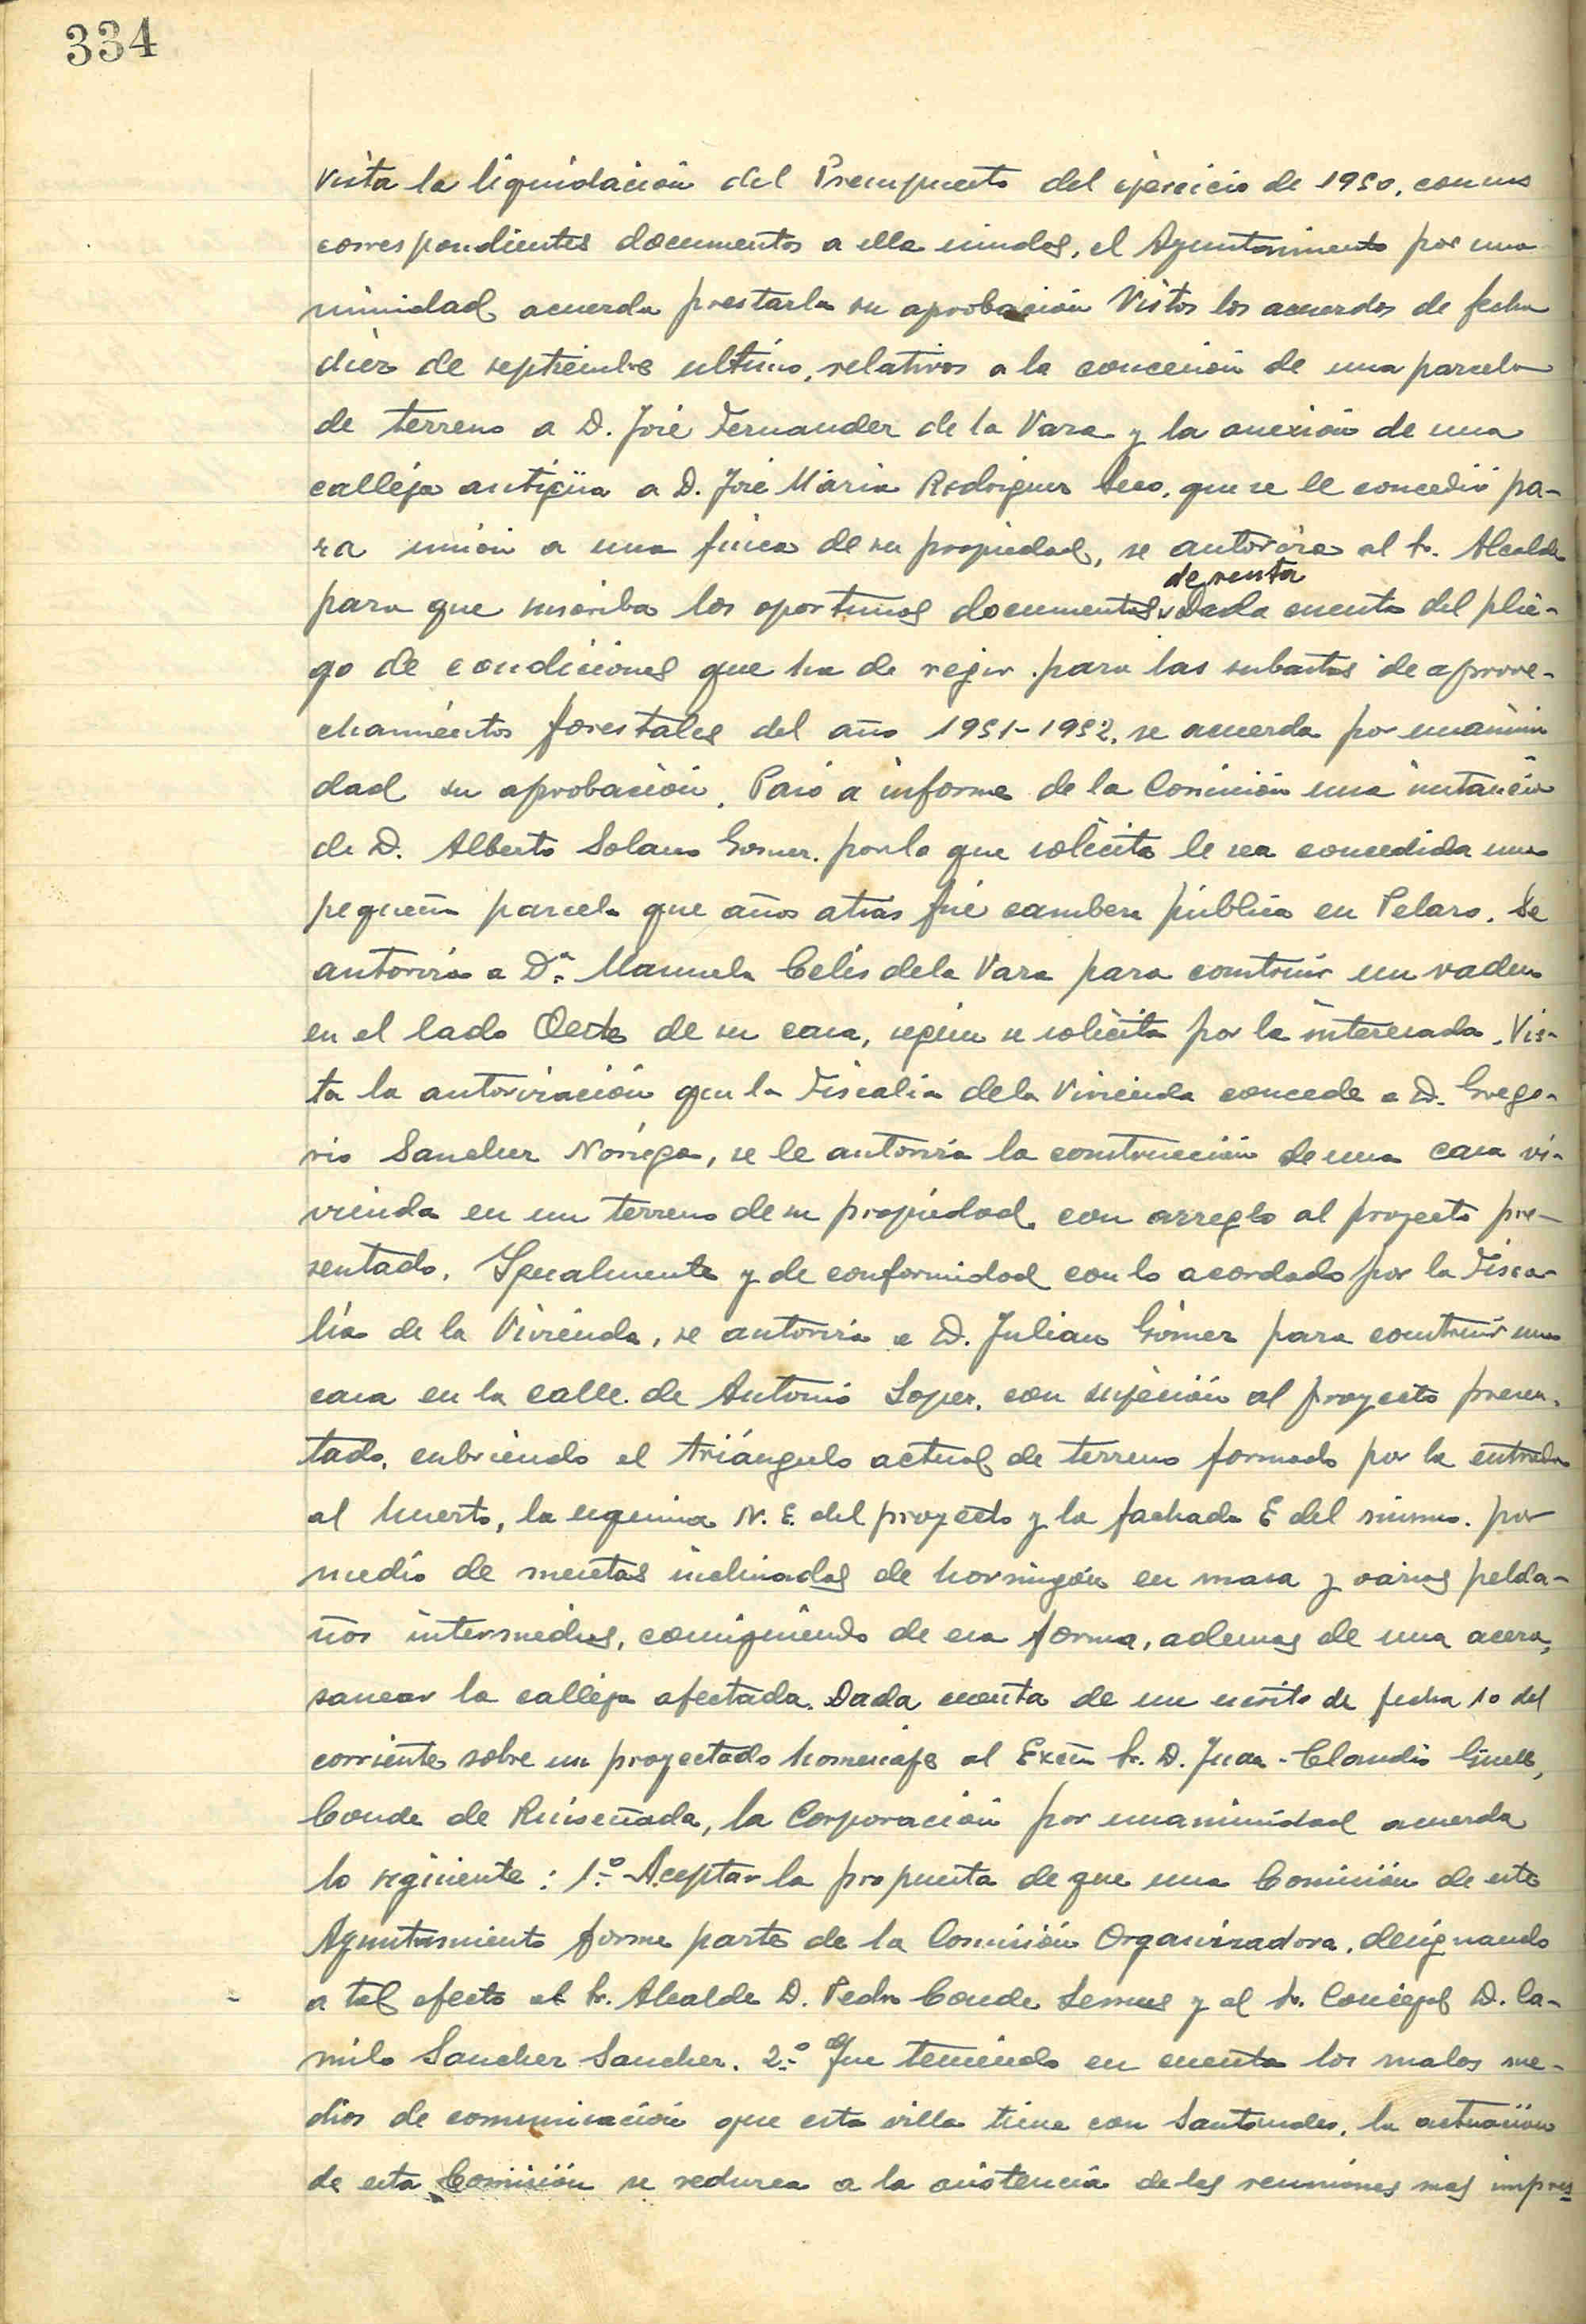 334
Vista la liquidación del Presupuesto del ejercicio de 1950, con sus
correspondientes documentos a ella unidos, el Ayuntamiento por una-
nimidad acuerda prestarla su aprobación Vistos los acuerdos de fecha
diez de septiembre ultimo, relativos a la concesión de una parcela
de terreno a D. José Fernandez de la Vara y la anexión de una
calleja antigüa a D. José Maria Rodriguez Seco, que se le concedió pa-
ra unión a una finca de su propiedad, se autoriza al Sr. Alcalde
de venta
para que suscriba los oportunos documentos Dada cuenta del plie-
go de condiciones que ha de regir para las subastas de aprove-
chamientos forestales del año 1951-1952, se acuerda por unanimi
dad su aprobación. Pasó a informe de la Comisión una instancia
de D. Alberto Solano Gomez, por la que solicita le sea concedida una
pequeña parcela que años atrás fué cambera pública en Velaro. Se
autoriza a Dª. Manuela Celis de la Vara para construir un vado
en el lado Oeste de su casa, según se solicita por la interesada. Vis-
ta la autorización que la Fiscalia de la Vivienda concede a D. Grego-
rio Sanchez Noriega, se le autoriza la construcción de una casa vi-
vienda en un terreno de su propiedad con arreglo al proyecto pre-
sentado. Igualmente y de conformidad con lo acordado por la Fisca-
lia de la Vivienda, se autoriza a D. Julian Gómez para construir una
casa en la calle de Antonio Lopez, con sujeción al proyecto presen-
tado, cubriendo el triángulo actual de terreno formado por la entrada
al huerto, la esquina N. E. del proyecto y la fachada E del mismo, por
medio de mesetas inclinadas de hormigón en masa y varios pelda-
ños intermedios, consiguiendo de esa forma, ademas de una acera,
sanear la calleja afectada. Dada cuenta de un escrito de fecha 10 del
corriente sobre un proyectado homenaje al Excmº Sr. D. Juan-Claudio Güell,
Conde de Ruiseñada, la Corporación por unanimidad acuerda
lo siguiente: 1.º Aceptar la propuesta de que una Comisión de este
Ayuntamiento forme parte de la Comisión Organizadora, designando
a tal efecto al Sr. Alcalde D. Pedro Conde Lemus y al Sr. Concejal D. Ca-
milo Sanchez Sanchez. 2.º Que teniendo en cuenta los malos me-
dios de comunicación que esta villa tiene con Santander, la actuación
de esta Comisión se reduzca a la asistencia de las reuniones mas impres